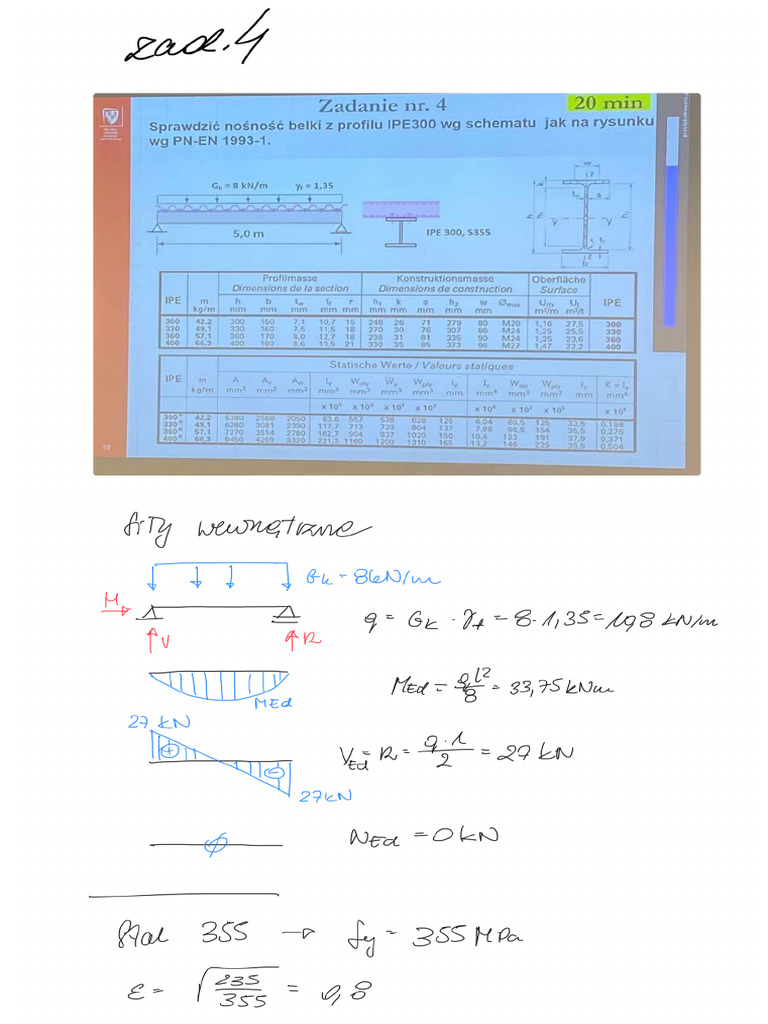 zad.4
Zadanie nr. 4
20 min
Sprawdzić nośność belki z profilu IPE300 wg schematu jak na rysunku
wg PN-EN 1993-1.
Gk = 8 kN/m γf = 1,35
5,0 m
IPE 300, S355
Profilmasse Konstruktionsmasse Oberfläche
Dimensions de la section Dimensions de construction Surface
IPE m h b tw tf r h1 k a h2 w Ømax Um Ut IPE
kg/m mm mm mm mm mm mm mm mm mm mm m²/m m²/t
300 42,2 300 150 7,1 10,7 15 248 26 71 279 80 M20 1,16 27,5 300
330 49,1 330 160 7,5 11,5 18 270 30 76 307 86 M24 1,25 25,5 330
360 57,1 360 170 8,0 12,7 18 298 31 81 335 90 M24 1,35 23,6 360
400 66,3 400 180 8,6 13,5 21 330 35 85 373 96 M27 1,47 22,2 400
Statische Werte / Valeurs statiques
IPE m A Av Aw Iy Wely Wy Wply iy Iz Welz Wplz iz K = Ix
kg/m mm² mm² mm² mm⁴ mm³ mm³ mm³ mm mm⁴ mm³ mm³ mm mm⁴
x 10⁶ x 10³ x 10³ x 10³ x 10⁶ x 10³ x 10³ x 10⁶
300 42,2 5380 2568 2050 83,6 557 628 125 6,04 80,5 125 33,5 0,198
330 49,1 6260 3081 2390 117,7 713 804 137 7,88 98,5 154 35,5 0,276
360 57,1 7270 3514 2780 162,7 904 937 1020 150 10,4 123 191 37,9 0,371
400 66,3 8450 4269 3320 231,3 1160 1200 1310 165 13,2 146 229 39,5 0,504
19
siły wewnętrzne
Gk = 8kN/m
H
q = Gk · γf = 8 · 1,35 = 10,8 kN/m
V R
MEd = ql²/8 = 33,75 kNm
MEd
27 kN
+
VEd = R = q·l/2 = 27 kN
-
27kN
NEd = 0 kN
Stal 355 → fy = 355 MPa
ε = √235/355 = 0,8